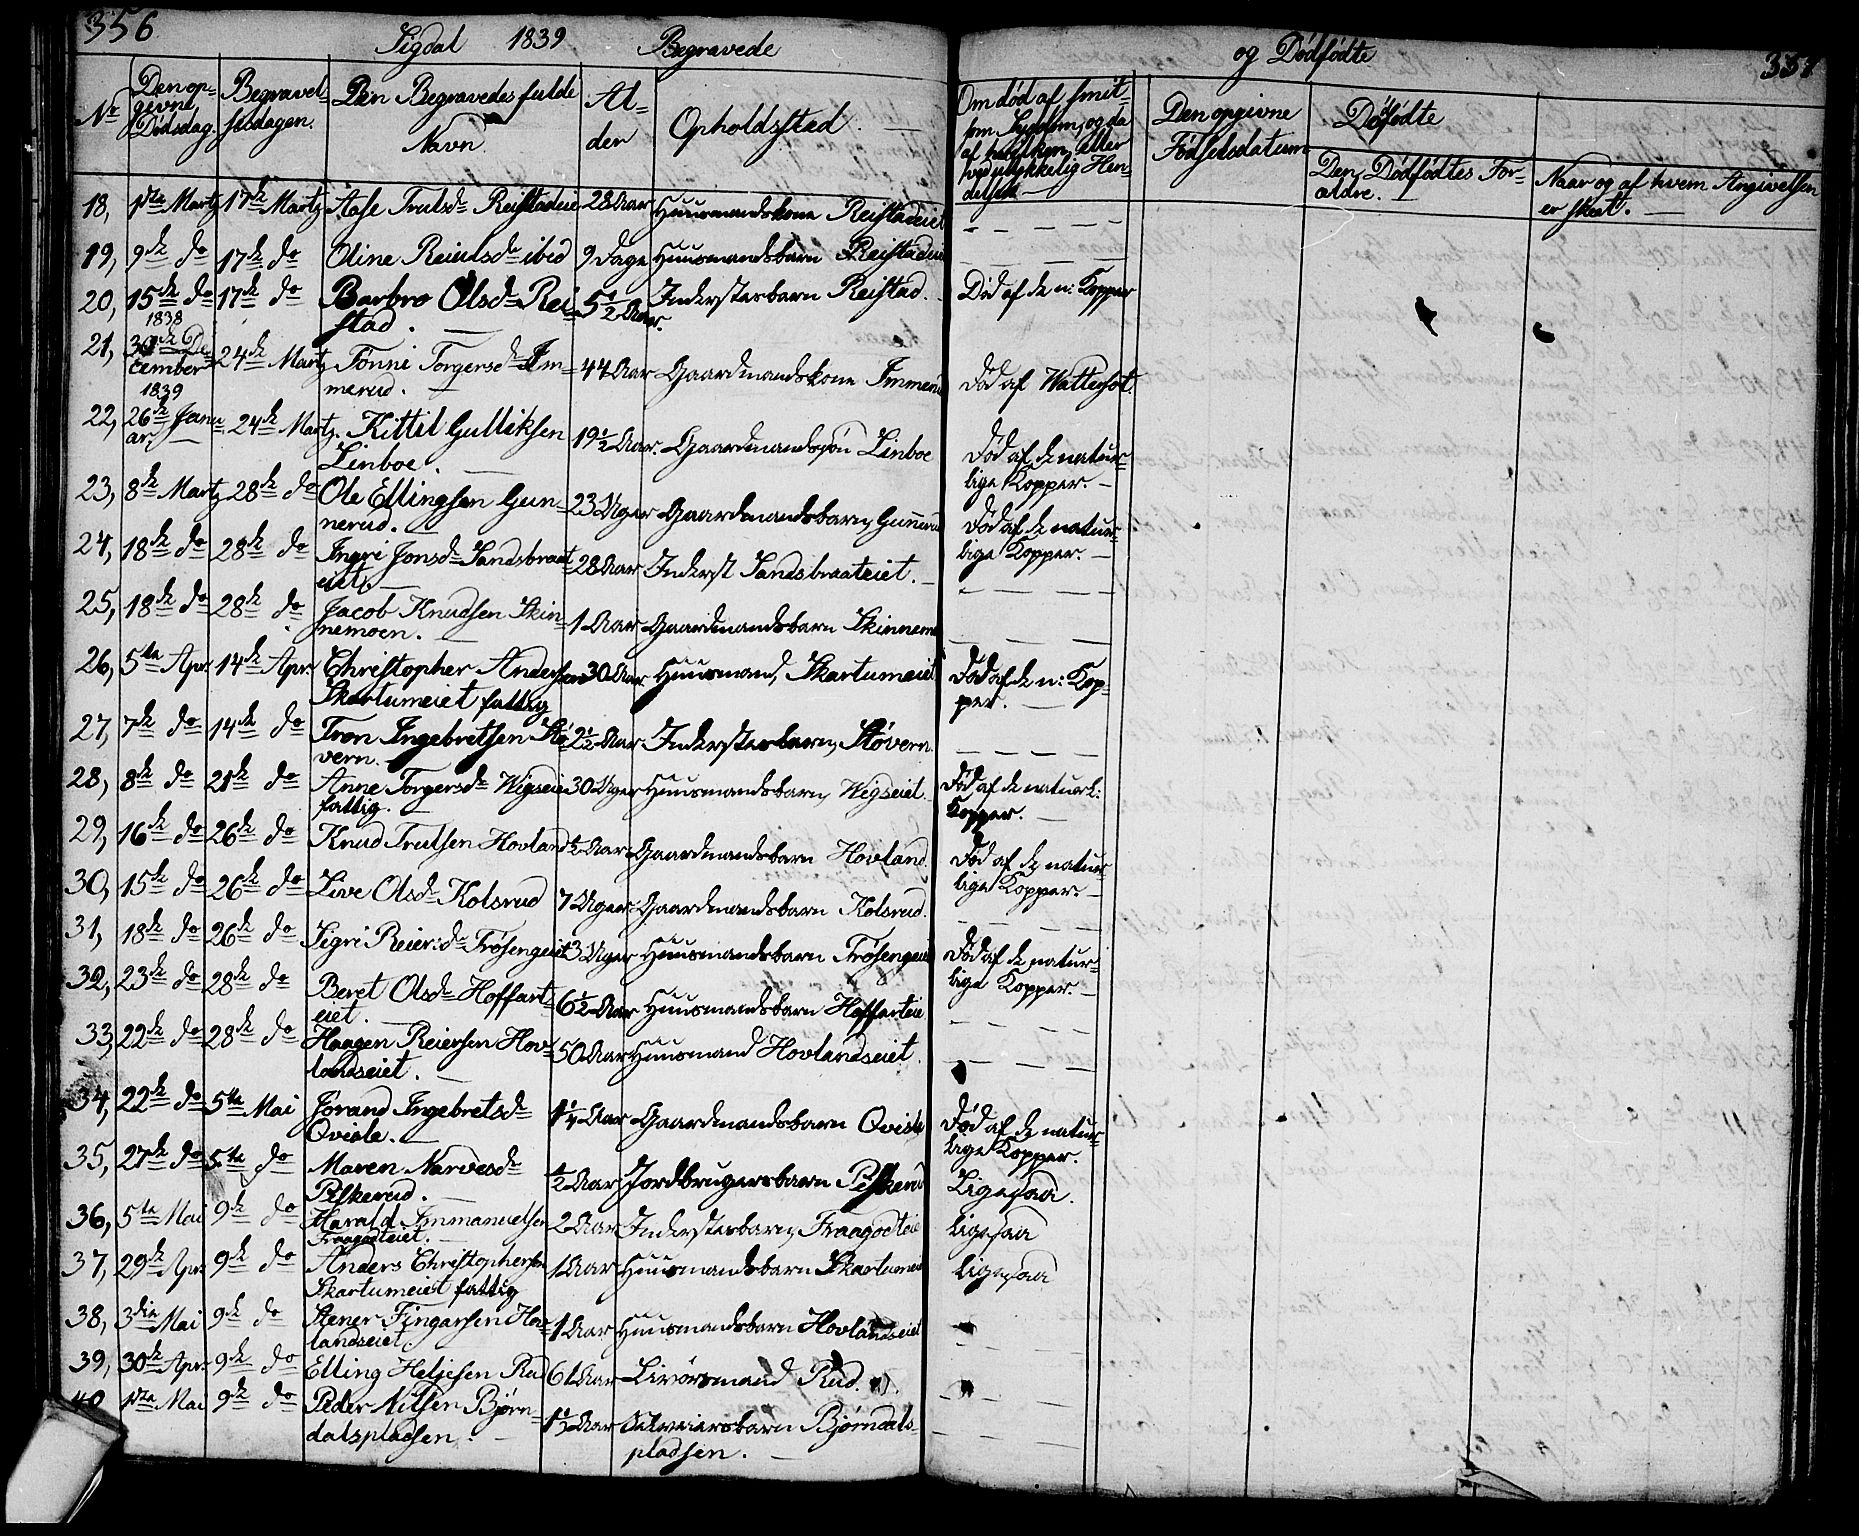 356
Sigdal 1839 Begravede
og Dødfødte
337
No
Den op-
givne
Dødsdag.
Begravel-
sesdagen.
Den Begravedes fulde
Navn
Al-
der
Opholdssted.
Om død af smit-
som Sygdom, og da
af hvilken, eller
ved ulykkelig Hen-
delse
Den opgivne
Fødselsdatum
Døfødte
Den Dødfødtes For-
ældre.
Naar og af hvem Angivelsen
er skeet.
18, 1ste Martz 17de Martz Aase Trulsdr Reistadeie 28 Aar Huusmandskone Reistadeiet
19, 9de do 17de do Oline Reiulsdr ibid 9 Dage Huusmandsbarn Reistadeie
20, 15de do 17de do Barbro Olsdr Rei- 5 1/2 Aar. Inderstesbarn Reistad. Død af de n: Kopper
stad.
1838
21, 30de De- 24de Martz Tønni Torgersdr Im- 44 Aar Gaardmandskone Immerud Død af Wattersot.
cember merud.
1839
22, 26de Janu- 24de Martz. Kittil Gulliksen 19 1/2 Aar. Gaardmandssøn Linboe Død af de natur-
ar Linboe. lige Kopper.
23, 8de Martz 28de do Ole Ellingsen Gun- 23 Uger Gaardmandsbarn, Gunnerud Død af de natur-
nerud. lige Kopper.
24, 18de do 28de do Ingri Jonsdr Sandsbraat- 28 Aar Inderst Sandsbraateiet.
eiet.
25, 18de do 28de do Jacob Knudsen Skin- 1 Aar Gaardmandsbarn Skinnemo
nemoen.
26, 5te Apr. 14de Apr. Christopher Andersen 30 Aar Huusmand, Skartumeiet Død af de n: Kop-
Skartumeiet fattig per.
27, 7de do 14de do Tron Ingebretsen Stø- 2 1/2 Aar Inderstesbarn, Støvern.
vern.
28, 8de do 21de do Anne Torgersdr Wigseie 30 Uger Huusmandsbarn, Wigseiet. Død af de naturl:
fattig. Kopper.
29, 16de do 26de do Knud Trulsen Hovland 1/2 Aar Gaardmandsbarn Hovland. Død af de natur-
lige Kopper.
30, 15de do 26de do Live Olsdr Kolsrud 7 Uger Gaardmandsbarn Kolsrud.
31, 18de do 26de do Sigri Reiersdr Frøsengeiet 3 Uger Huusmandsbarn Frøsengeiet Død af de natur-
lige Kopper.
32, 23de do 28de do Beret Olsdr Hoffart- 6 1/2 Aar Huusmandsbarn Hoffarteie
eiet.
33, 22de do 28de do Haagen Reiersen Hov- 50 Aar Huusmand Hovlandseiet.
landseiet.
34, 22de do 5te Mai Jørand Ingebretsdr 1 1/4 Aar Gaardmandsbarn Qvisle Død af de natur-
Qvisle. lige Kopper.
35, 27de do 5te do Maren Narvesdr 1/2 Aar Jordbrugersbarn Peskerud Ligesaa.
Peskerud.
36, 5te Mai 9de do Harald Immanuelsen 2 Aar Inderstesbarn, Fraagodteie Ligesaa
Fraagodteiet.
37, 29de Apr. 9de do Anders Christophersen 1 Aar Huusmandsbarn Skartumeie Ligesaa
Skartumeiet fattig
38, 3die Mai 9de do Stener Fingarsen Hov- 1 Aar Huusmandsbarn Hovlandseiet
landseiet
39, 30de Apr. 9de do Elling Heljesen Rud 61 Aar Livørsmand Rud.
40 1ste Mai 9de do Peder Nilsen Bjørn- 1 1/2 Aar Selveiersbarn Bjørndals-
dalspladsen. pladsen.